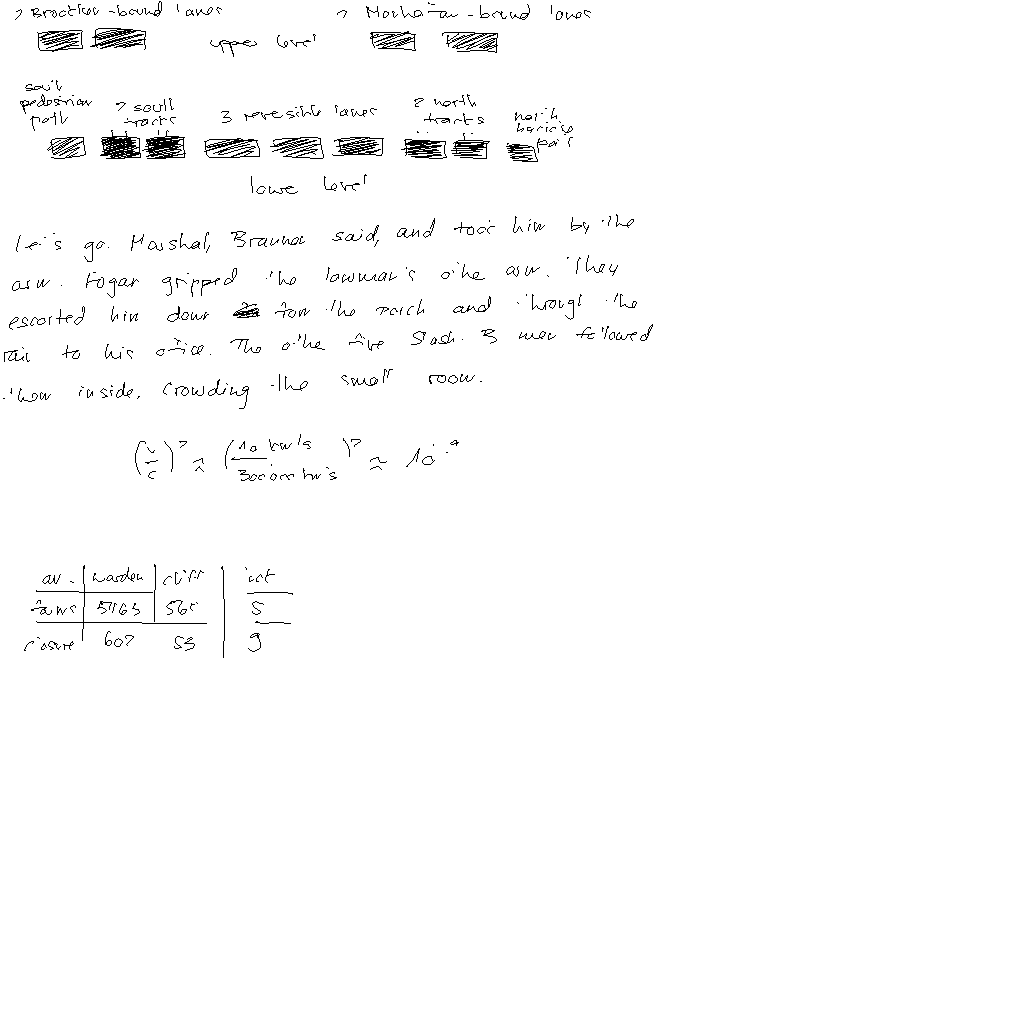 2 Brooklyn-bound lanes 2 Manhattan-bound lanes
upper level
south pedestrian path
2 south tracks
3 reversible lanes
2 north tracks
north bicycle path
lower level
Let's go. Marshal, Brannon said, and took him by the
arm. Fogan gripped the lawman's other arm. They
escorted him down from the porch and through the
rain to his office. The other five Slash B men followed
them inside, crowding the small room.
(v/c)² ≈ (10 km/s / 300000 km/s)² ≈ 10
av. warden cliff
5 9
607 53